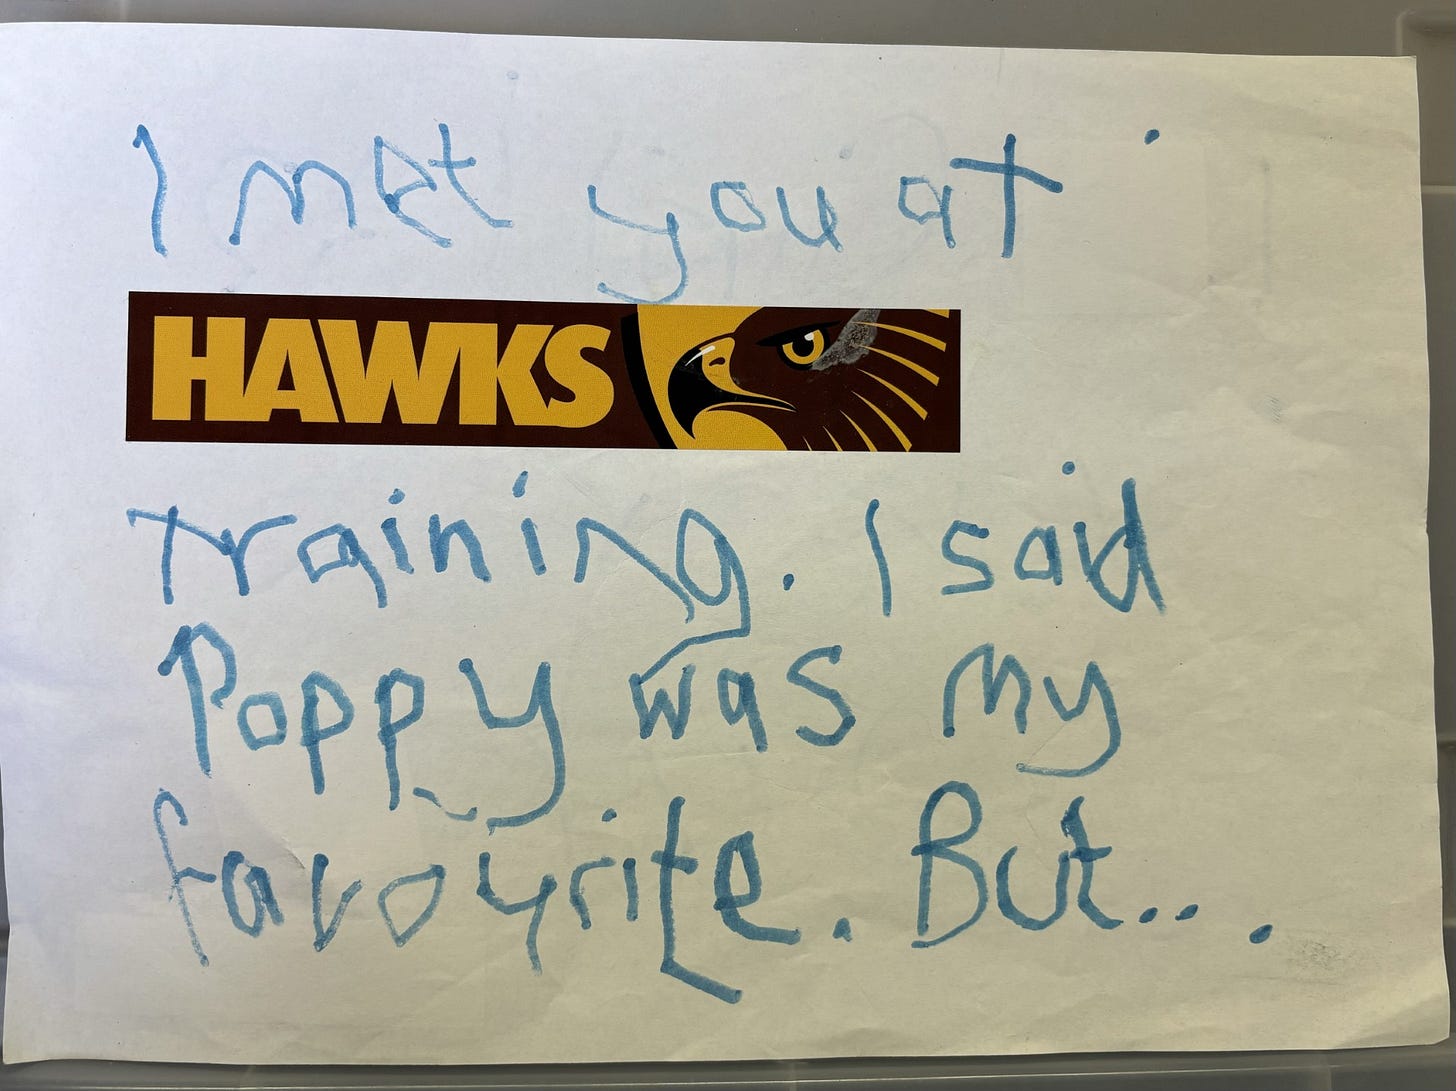 I met you at
HAWKS
training. I said
Poppy was my
favourite. But...